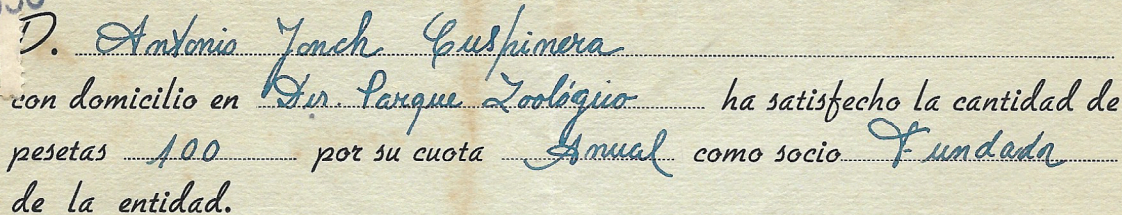 D. Antonio Jonch Cuspinera
con domicilio en Dir. Parque Zoológico ha satisfecho la cantidad de
pesetas 100 por su cuota Anual como socio Fundador
de la entidad.